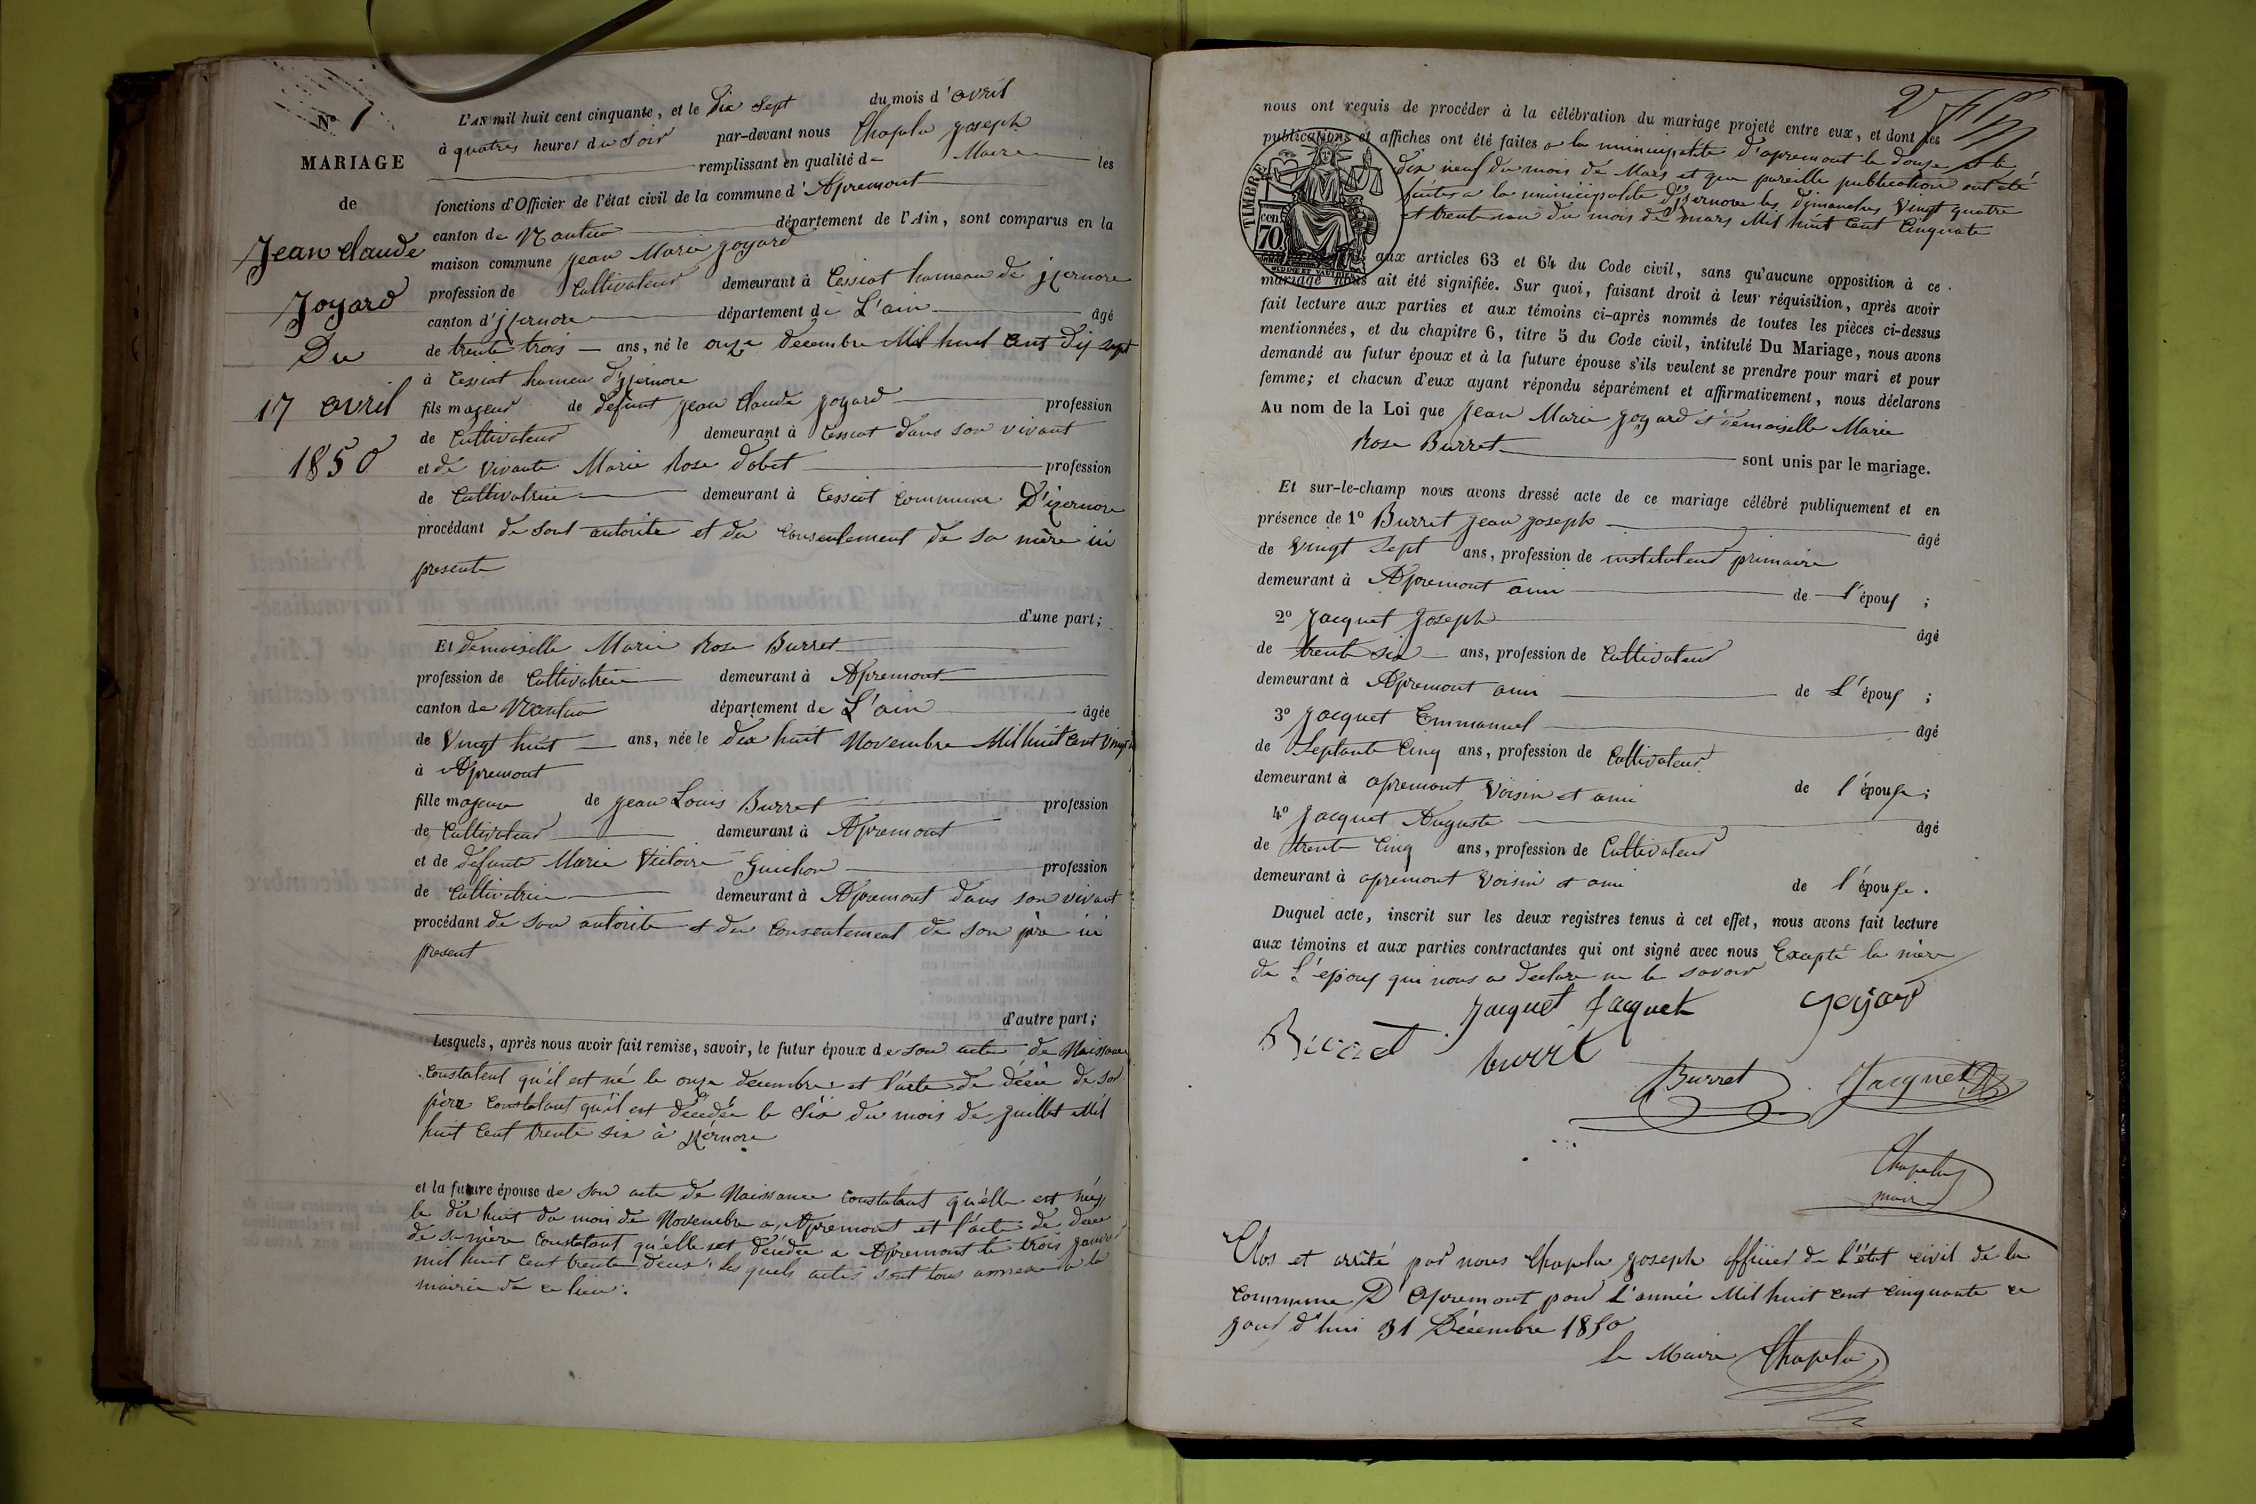 N° 1
MARIAGE
de
Jean Claude
Joyard
Du
17 avril
1850
L'AN mil huit cent cinquante, et le dix sept du mois d'avril
à quatres heures du soir par-devant nous Chapelu joseph
remplissant en qualité de Maire les
fonctions d'Officier de l'état civil de la commune d'Apremont
canton de Nantua département de l'Ain, sont comparus en la
maison commune jean Marie joyard
profession de Cultivateur demeurant à Cessiat hameau de jzernore
canton d'jzernore département de L'ain âgé
de trente trois ans, né le onze decembre Mil huit Cent Dix sept
à Cessiat hameau d'jzernore
fils majeur de defunt jean Claude joyard profession
de Cultivateur demeurant à Cessiat dans son vivant
et de vivante Marie Rose dobet profession
de Cultivatrice demeurant à Cessiat Commune D'izernore
procédant de sont autorite et du Consentement de sa mère ici
presente
d'une part;
Et demoiselle Marie Rose Burret
profession de Cultivatrice demeurant à Apremont
canton de Nantua département de L'ain âgée
de Vingt huit ans, née le dix huit Novembre Mil huit Cent Vingt
à Apremont
fille majeure de jean Louis Burret profession
de Cultivateur demeurant à Apremont
et de defunte Marie Victoire Guichon profession
de Cultivatrice demeurant à Apremont dans son vivant
procédant de son autorite et du Consentement de son père ici
present
d'autre part;
Lesquels, après nous avoir fait remise, savoir, le futur époux de son acte de Naissance
Constatent qu'il est né le onze decembre et l'acte de décès de son
père Constatant qu'il est décédée le Six du mois de juillet Mil
huit Cent trente six à jzernore
et la future épouse de son acte de Naissance Constatant qu'elle est née
le dix huit du mois de Novembre a Apremont et l'acte de deces
de sa mère Constatant qu'elle est décédée a Apremont le trois janvier
mil huit Cent trente deux; les quels actes sont tous annexe a la
mairie de ce lieu.
nous ont requis de procéder à la célébration du mariage projeté entre eux, et dont les
publications et affiches ont été faites a la municipalite d'apremont le douze et le
dix neuf du mois de Mars et que pareille publication ont été
faites a la municipalite d'jzernore les dimanches Vingt quatre
et trente un du mois de mars Mil huit Cent Cinquante
TIMBRE
cen
70
aux articles 63 et 64 du Code civil, sans qu'aucune opposition à ce
mariage nous ait été signifiée. Sur quoi, faisant droit à leur réquisition, après avoir
fait lecture aux parties et aux témoins ci-après nommés de toutes les pièces ci-dessus
mentionnées, et du chapitre 6, titre 5 du Code civil, intitulé Du Mariage, nous avons
demandé au futur époux et à la future épouse s'ils veulent se prendre pour mari et pour
femme; et chacun d'eux ayant répondu séparément et affirmativement, nous déclarons
Au nom de la Loi que jean Marie joyard et demoiselle Marie
Rose Burret sont unis par le mariage.
Et sur-le-champ nous avons dressé acte de ce mariage célébré publiquement et en
présence de 1° Burret jean joseph âgé
de Vingt Sept ans, profession de instituteur primaire
demeurant à Apremont ami de l'époux;
2° jacquet joseph âgé
de trente six ans, profession de Cultivateur
demeurant à Apremont ami de L'époux;
3° jacquet Emmanuel âgé
de Septante Cinq ans, profession de Cultivateur
demeurant à apremont Voisin et ami de l'épouse;
4° jacquet Auguste âgé
de trente Cinq ans, profession de Cultivateur
demeurant à apremont Voisin et ami de l'épouse.
Duquel acte, inscrit sur les deux registres tenus à cet effet, nous avons fait lecture
aux témoins et aux parties contractantes qui ont signé avec nous Excepté la mère
de L'epoux qui nous a declare ne le savoir
jacquet jacquet joyard
Burret burret
Burret Jacquet
Chapelu
maire
Clos et arrêté par nous Chapelu joseph officier de l'état civil de la
Commune D'Apremont pour L'année Mil huit Cent Cinquante ce
jour d'hui 31 Décembre 1850
le Maire Chapelu